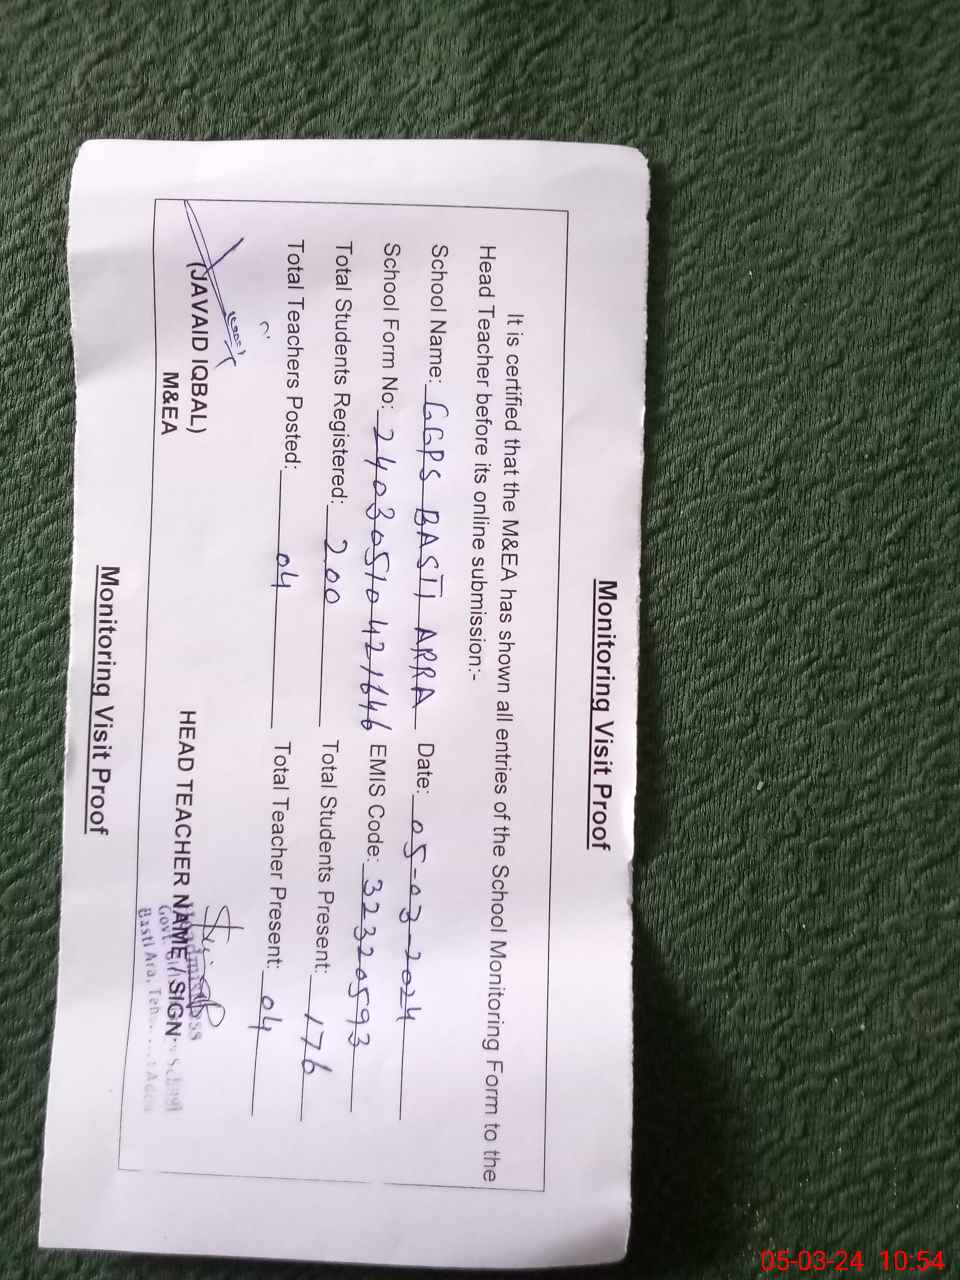 Monitoring Visit Proof
It is certified that the M&EA has shown all entries of the School Monitoring Form to the
Head Teacher before its online submission:-
School Name: GGPS BASTI ARRA Date: 05-03-2024
School Form No: 24030510421646 EMIS Code: 32320593
Total Students Registered: 200 Total Students Present: 176
Total Teachers Posted: 04 Total Teacher Present: 04
(JAVAID IQBAL)
M&EA
HEAD TEACHER NAME / SIGN
Headmistress
Govt. School
Basti Ara,
Monitoring Visit Proof
05-03-24 10:54